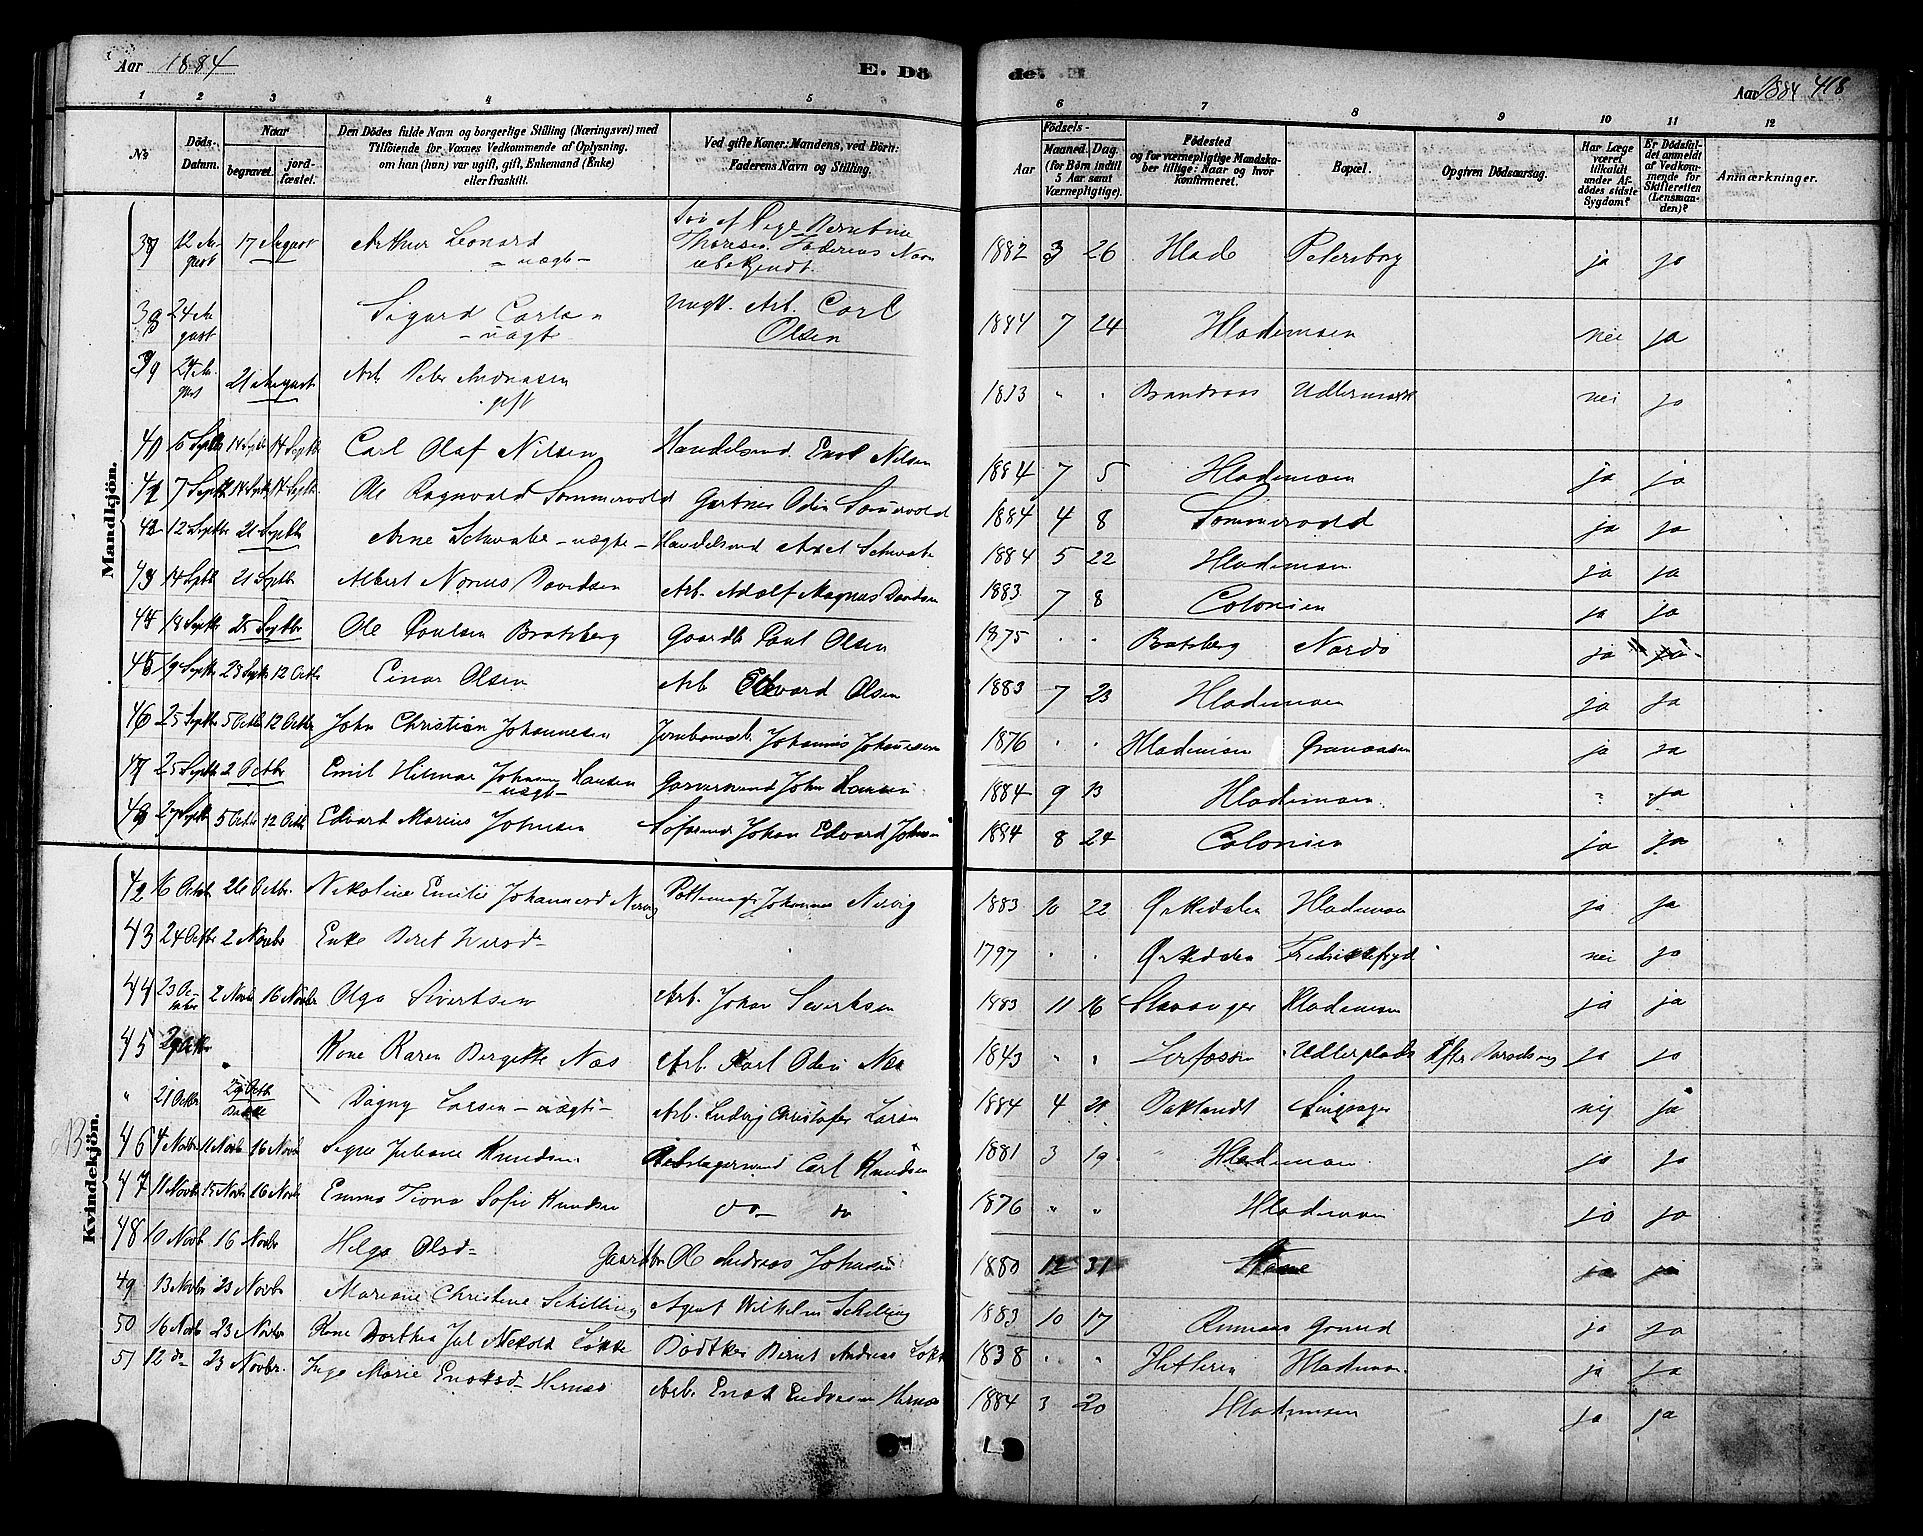 Aar 1884
E. Dö
de.
Aar 1884 418
1 2 3 4 5 6 7 8 9 10 11 12
No
Döds-Datum.
Naar begravet. jordfæstet.
Den Dödes fulde Navn og borgerlige Stilling (Næringsvei) med Tilföiende for Voxnes Vedkommende af Oplysning, om han (hun) var ugift, gift, Enkemand (Enke) eller fraskilt.
Ved gifte Koner: Mandens, ved Börn: Faderens Navn og Stilling.
Aar
Födsels- Maaned. Dag. (for Börn indtil 5 Aar samt Værnepligtige).
Födested og for værnepligtige Mandskaber tillige: Naar og hvor konfirmeret.
Bopæl.
Opgiven Dödsaarsag.
Har Læge været tilkaldt under Afdödes sidste Sygdom?
Er Dödsfaldet anmeldt af Vedkommende for Skifteretten (Lensmanden)?
Anmærkninger.
Mandkjön.
37 12 August 17 August Arthur Leonard - uægte - Pige Berntine Faderens Navn ubekjendt. 1882 3 26 Hlade Petersborg ja ja
38 24 August Sigurd Carlsen - uægte Arb. Carl Olsen 1884 7 24 Hlademoen nei ja
39 24 August 21 August Arb. Peter Andreasen gift 1813 " " nei ja
40 5 Septbr 14 Septbr 14 Septbr Carl Olaf Nilsen Handelsmd. Enok Nilsen 1884 7 5 Hlademoen ja ja
41 7 Septbr 14 Septbr 14 Septbr Ole Ragnvald Sommervold Gartner Odin Sommervold 1884 4 8 Sommervold ja ja
42 12 Septbr 21 Septbr Arne Schwabe - uægte - Handelsmd Axel Schwabe 1884 5 22 Hlademoen ja ja
43 14 Septbr 21 Septbr Albert Davidsen Arb. Adolf Magnus Davidsen 1883 7 8 Colonien ja ja
44 18 Septbr 25 Septbr Ole Poulsen Bratsberg Gaardb. Paul Olsen 1875 " " Bratsberg Nardo ja ja
45 19 Septbr 28 Septbr 12 Octbr Einar Olsen Arb Edvard Olsen 1883 7 23 Hlademoen ja ja
46 25 Septbr 5 Octbr 12 Octbr John Christian Johannesen Johannes Johannesen 1876 " " Hlademoen Granaasen ja ja
47 25 Septbr 2 Octbr Emil Hilmar Johan Hansen - uægte - Garversvend John Hansen 1884 9 13 Hlademoen " ja
49 27 Septbr 5 Octbr 12 Octbr Edvard Marius Johnsen Johan Edvard Johnsen 1884 8 24 Colonien ja ja
Kvindekjön.
42 16 Octbr. 26 Octbr. Nikoline Emilie Johannesd Nervig Pottemager Johannes Nervig 1883 10 22 Orkedalen Hlademoen ja ja
43 24 Octbr 2 Novbr Enke Beret Iversd- 1797 " " Orkedalen Fredriksfryd nei ja
44 23 October 2 Novbr 16 Novbr Olga Sivertsen Arb. Johan Sivertsen 1883 11 16 Stavanger Hlademoen ja ja
45 29 Octbr Kone Karen Bergitte Næs Arb. Karl Odin Næs 1843 " " Udlerplads Efter Barselseng ja ja
" 21 Octbr 29 Octbr Dagny Larsen - uægte - Arb. Ludvig Christofer Larsen 1884 4 Singsager nej ja
46 4 Novbr 11 Novbr 16 Novbr Signe Juliane Knudsen Carl Knudsen 1881 3 19 Hlademoen ja ja
47 11 Novbr 15 Novbr 16 Novbr Emma Tiona Sofie Knudsen do do 1876 " " Hlademoen ja ja
48 10 Novb. 16 Novbr Helga Olsd- Gaardbr Ole Andreas Johnsen 1880 12 31 ja ja
49 13 Novbr 23 Novbr Mariane Christine Schilling Agent Wilhelm Schilling 1883 10 17 Grund ja ja
50 16 Novbr 23 Novbr Kone Dorthea Løkke Bødtker Bernt Andreas Løkke 1838 " " Hitteren Hlademoen ja ja
51 12 do 23 Novbr. Inga Marie Enoksd- Hernæs Arb. Enok Hernæs 1884 3 20 Hlademoen ja ja